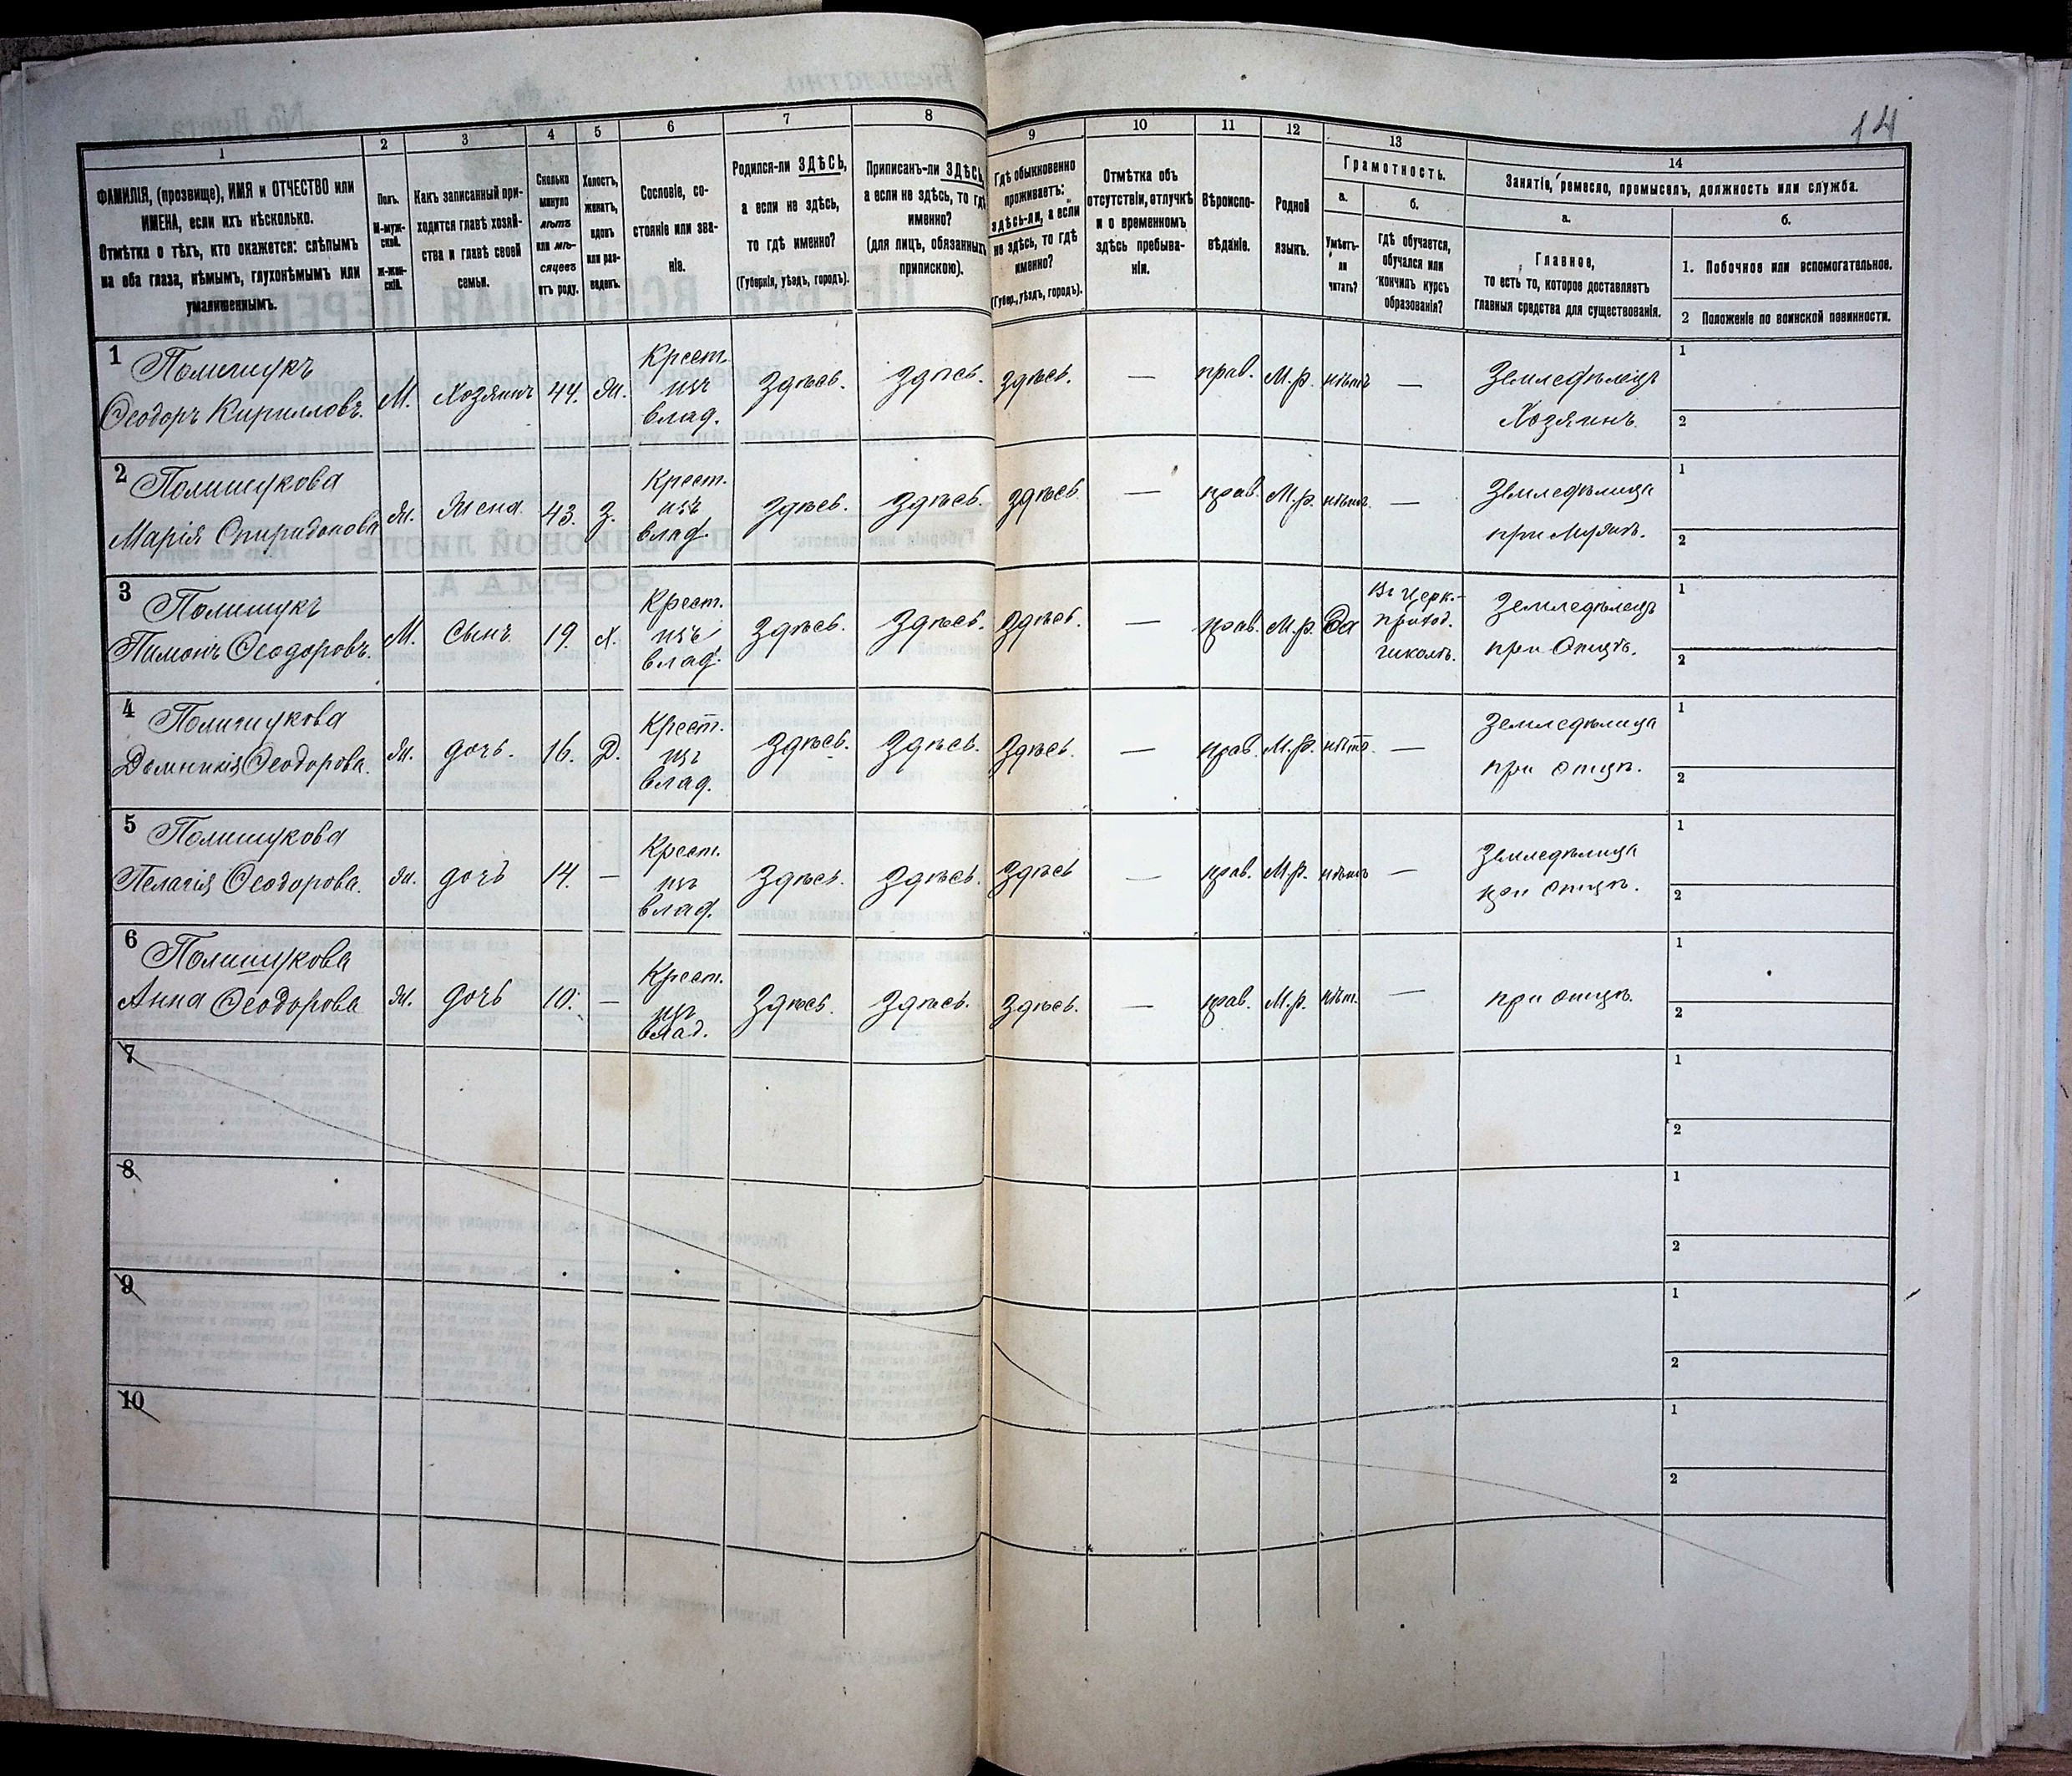 14
1 2 3 4 5 6 7 8 9 10 11 12 13 14
ФАМИЛІЯ, (прозвище), ИМЯ и ОТЧЕСТВО или
ИМЕНА, если ихъ нѣсколько.
Отмѣтка о тѣхъ, кто окажется: слѣпымъ
на оба глаза, нѣмымъ, глухонѣмымъ или
умалишеннымъ.
Полъ.
М-муж-
ской.
ж-жен-
скій.
Какъ записанный при-
ходится главѣ хозяй-
ства и главѣ своей
семьи.
Сколько
минуло
лѣтъ
или мѣ-
сяцевъ
отъ роду.
Холостъ,
женатъ,
вдовъ
или раз-
веденъ.
Сословіе, со-
стояніе или зва-
ніе.
Родился-ли ЗДѢСЬ,
а если не здѣсь,
то гдѣ именно?
(Губернія, уѣздъ, городъ).
Приписанъ-ли ЗДѢСЬ,
а если не здѣсь, то гдѣ
именно?
(для лицъ, обязанныхъ
припискою).
Гдѣ обыкновенно
проживаетъ:
здѣсь-ли, а если
не здѣсь, то гдѣ
именно?
(Губер., уѣздъ, городъ).
Отмѣтка объ
отсутствіи, отлучкѣ
и о временномъ
здѣсь пребыва-
ніи.
Вѣроиспо-
вѣданіе.
Родной
языкъ.
Грамотность.
а.
Умѣетъ-
ли
читать?
б.
гдѣ обучается,
обучался или
кончилъ курсъ
образованія?
Занятіе, ремесло, промыселъ, должность или служба.
а.
Главное,
то есть то, которое доставляетъ
главныя средства для существованія.
б.
1. Побочное или вспомогательное.
2 Положеніе по воинской повинности.
1 Полищукъ
Ѳеодоръ Кирилловъ.
М. Хозяинъ 44. Ж.
Крест.
изъ
влад.
Здѣсь. Здѣсь. Здѣсь. — прав. М.р. нѣтъ —
Земледѣлецъ
Хозяинъ.
1
2
2 Полищукова
Марія Спиридонова
Ж. Жена 43. З.
Крест.
изъ
влад.
Здѣсь. Здѣсь. Здѣсь. — прав. М.р. нѣтъ. —
Земледѣлица
при Мужѣ.
1
2
3 Полищукъ
Пимонъ Ѳеодоровъ.
М. Сынъ 19. Х.
Крест.
изъ
влад.
Здѣсь. Здѣсь. Здѣсь. — прав. М.р. Да
Въ Церк.-
приход.
школѣ.
Земледѣлецъ
при Отцѣ.
1
2
4 Полищукова
Домникія Ѳеодорова.
Ж. дочь. 16. Д.
Крест.
изъ
влад.
Здѣсь. Здѣсь. Здѣсь. — прав. М.р. нѣтъ. —
Земледѣлица
при отцѣ.
1
2
5 Полищукова
Пелагія Ѳеодорова.
Ж. дочь 14. —
Крест.
изъ
влад.
Здѣсь. Здѣсь. Здѣсь — прав. М.р. нѣтъ —
Земледѣлица
при отцѣ.
1
2
6 Полищукова
Анна Ѳеодорова
Ж. дочь 10. —
Крест.
изъ
влад.
Здѣсь. Здѣсь. Здѣсь. — прав. М.р. нѣт. —
при отцѣ.
1
2
7
1
2
8
1
2
9
1
2
10
1
2